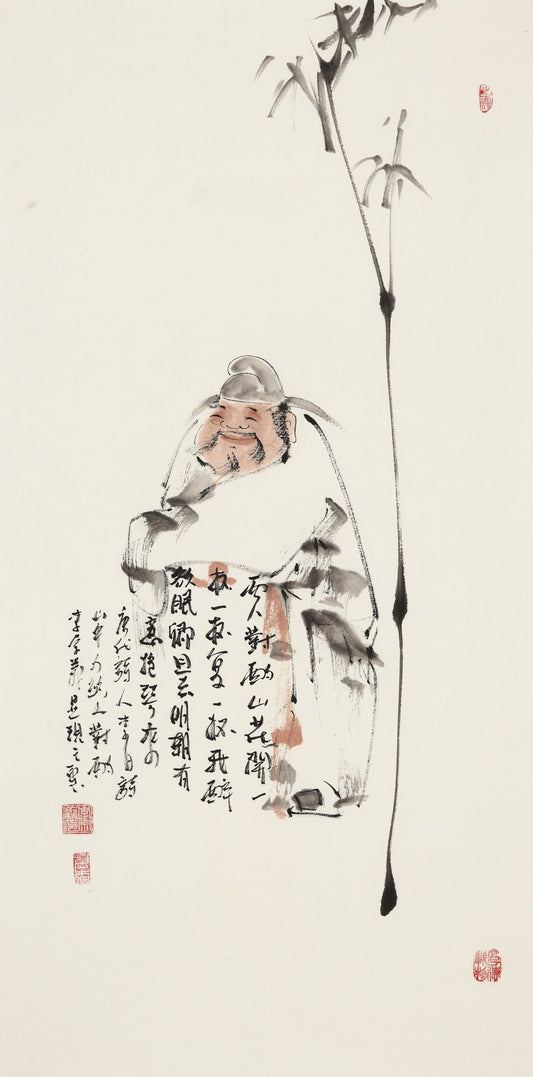 两人對酌山花開一
杯一杯复一杯我醉
欲眠卿且去明朝有
意抱琴
唐代詩人李白詩
山中与幽人對酌
李